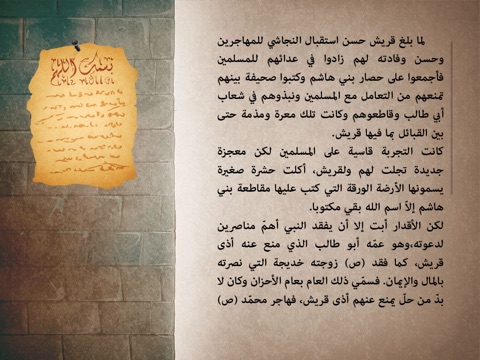 لما بلغ قريش حسن استقبال النجاشي للمهاجرين
وحسن وفادته لهم زادوا في عدائهم للمسلمين
فأجمعوا على حصار بني هاشم وكتبوا صحيفة بينهم
تمنعهم من التعامل مع المسلمين ونبذوهم في شعاب
أبي طالب وقاطعوهم وكانت تلك معرة ومذمة حتى
بين القبائل بما فيها قريش.
كانت التجربة قاسية على المسلمين لكن معجزة
جديدة تجلت لهم ولقريش، أكلت حشرة صغيرة
يسمونها الأرضة الورقة التي كتب عليها مقاطعة بني
هاشم إلاّ اسم الله بقي مكتوبا.
لكن الأقدار أبت إلا أن يفقد النبي أهمّ مناصرين
لدعوته،وهو عمّه أبو طالب الذي منع عنه أذى
قريش، كما فقد (ص) زوجته خديجة التي نصرته
بالمال والإيمان. فسمّي ذلك العام بعام الأحزان وكان لا
بدّ من حلّ يمنع عنهم أذى قريش، فهاجر محمّد (ص)